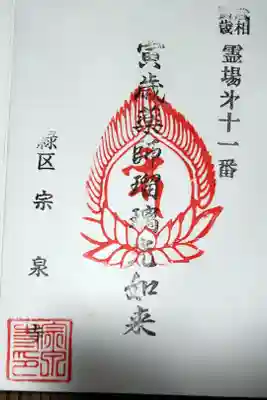 武相
寅歳
霊場才十一番
寅歳薬師瑠璃光如来
緑区 宗泉寺